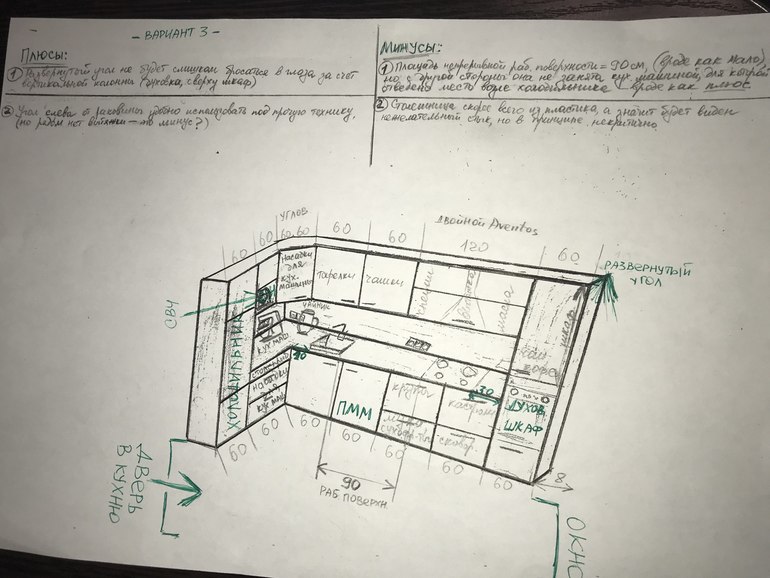 - ВАРИАНТ 3 -
ПЛЮСЫ:
① Развернутый угол не будет слишком бросаться в глаза за счет
вертикальной колонны (духовка, сверху шкаф)
② Угол слева от раковины удобно использовать под прочую технику,
(но рядом нет вытяжки - это минус?)
МИНУСЫ:
① Площадь непрерывной раб. поверхности = 90см, (вроде как мало),
но с другой стороны она не занята кух. машиной, для которой
отведено место возле холодильника - вроде как плюс
② Столешница скорее всего из пластика, а значит будет виден
нежелательный стык, но в принципе некритично
УГЛОВ
двойной Aventos
60
60
60,60
60
60
120
60
РАЗВЕРНУТЫЙ
УГОЛ
НАСАДКИ
ДЛЯ
КУХ.
МАШИНЫ
тарелки
чашки
специи
вытяжка
масла
шкаф
СВЧ
ХОЛОДИЛЬНИК
чайник
КУХ МАШ
НАСАДКИ
ДЛЯ
КУХ МАШ
ПММ
крупы
кастрюли
сковор.
30
ДУХОВ
ШКАФ
60
60
60
60
60
60
60
90
РАБ ПОВЕРХН
ДВЕРЬ
В КУХНЮ
ОКНО